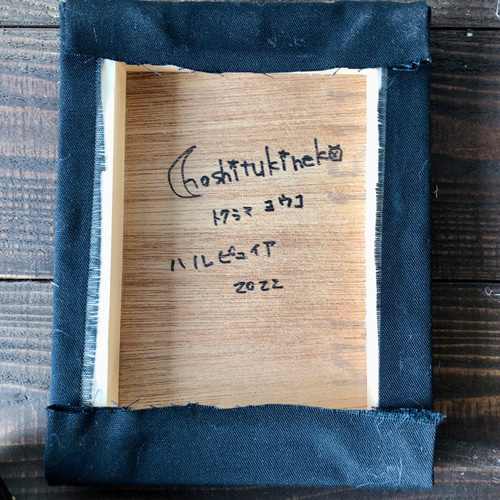 hoshitukineko
トクシマ ヨウコ
ハルピュイア
2022